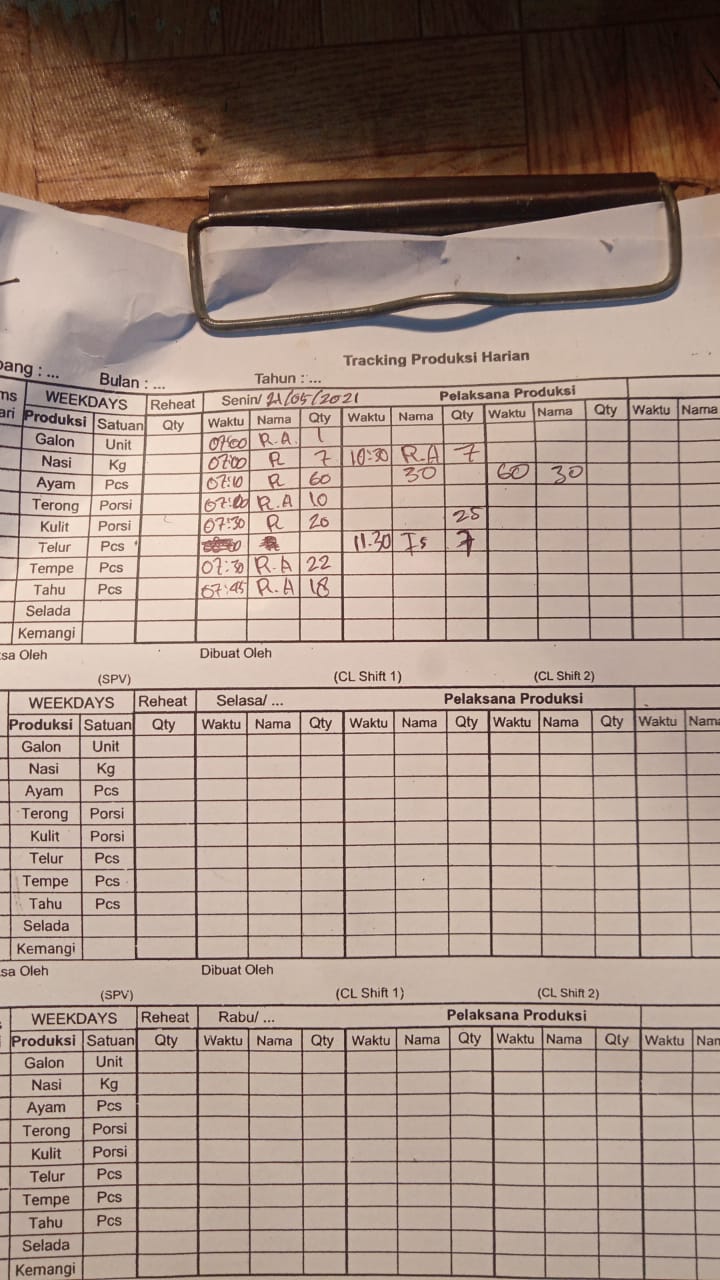 Tracking Produksi Harian
pang : ... Bulan : ... Tahun : ...
ms WEEKDAYS Reheat Senin/ 21/05/2021 Pelaksana Produksi
ari Produksi Satuan Qty Waktu Nama Qty Waktu Nama Qty Waktu Nama Qty Waktu Nama
Galon Unit 07:00 R.A. 1
Nasi Kg 07:00 R 7 10:30 R.A 7
Ayam Pcs 07:10 R 60 30 60 30
Terong Porsi 07:00 R.A 10
Kulit Porsi 07:30 R 20 25
Telur Pcs 11.30 Is 7
Tempe Pcs 07:30 R.A 22
Tahu Pcs 07:45 R.A 18
Selada
Kemangi
sa Oleh Dibuat Oleh
(SPV) (CL Shift 1) (CL Shift 2)
WEEKDAYS Reheat Selasa/ ... Pelaksana Produksi
Produksi Satuan Qty Waktu Nama Qty Waktu Nama Qty Waktu Nama Qty Waktu Nama
Galon Unit
Nasi Kg
Ayam Pcs
Terong Porsi
Kulit Porsi
Telur Pcs
Tempe Pcs
Tahu Pcs
Selada
Kemangi
sa Oleh Dibuat Oleh
(SPV) (CL Shift 1) (CL Shift 2)
WEEKDAYS Reheat Rabu/ ... Pelaksana Produksi
Produksi Satuan Qty Waktu Nama Qty Waktu Nama Qty Waktu Nama Qty Waktu Nam
Galon Unit
Nasi Kg
Ayam Pcs
Terong Porsi
Kulit Porsi
Telur Pcs
Tempe Pcs
Tahu Pcs
Selada
Kemangi